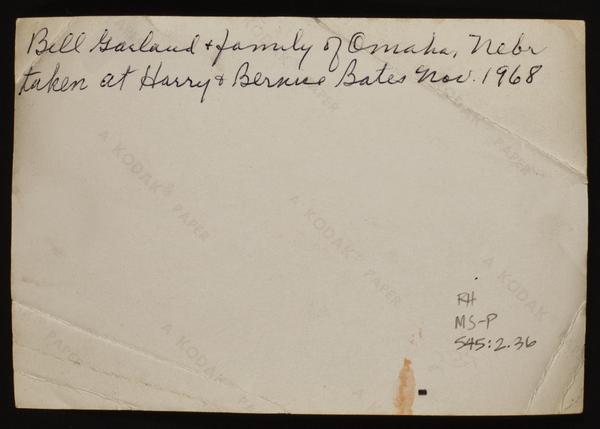 Bill Garland & family of Omaha, Nebr
taken at Harry & Bernice Bates Nov. 1968
A KODAK PAPER
PAPER
A KODAK® PAPER
A KODAK PAPER
A KODAK
RH
MS-P
545:2.36
PAPER
A KODAK PAPER
A KODAK